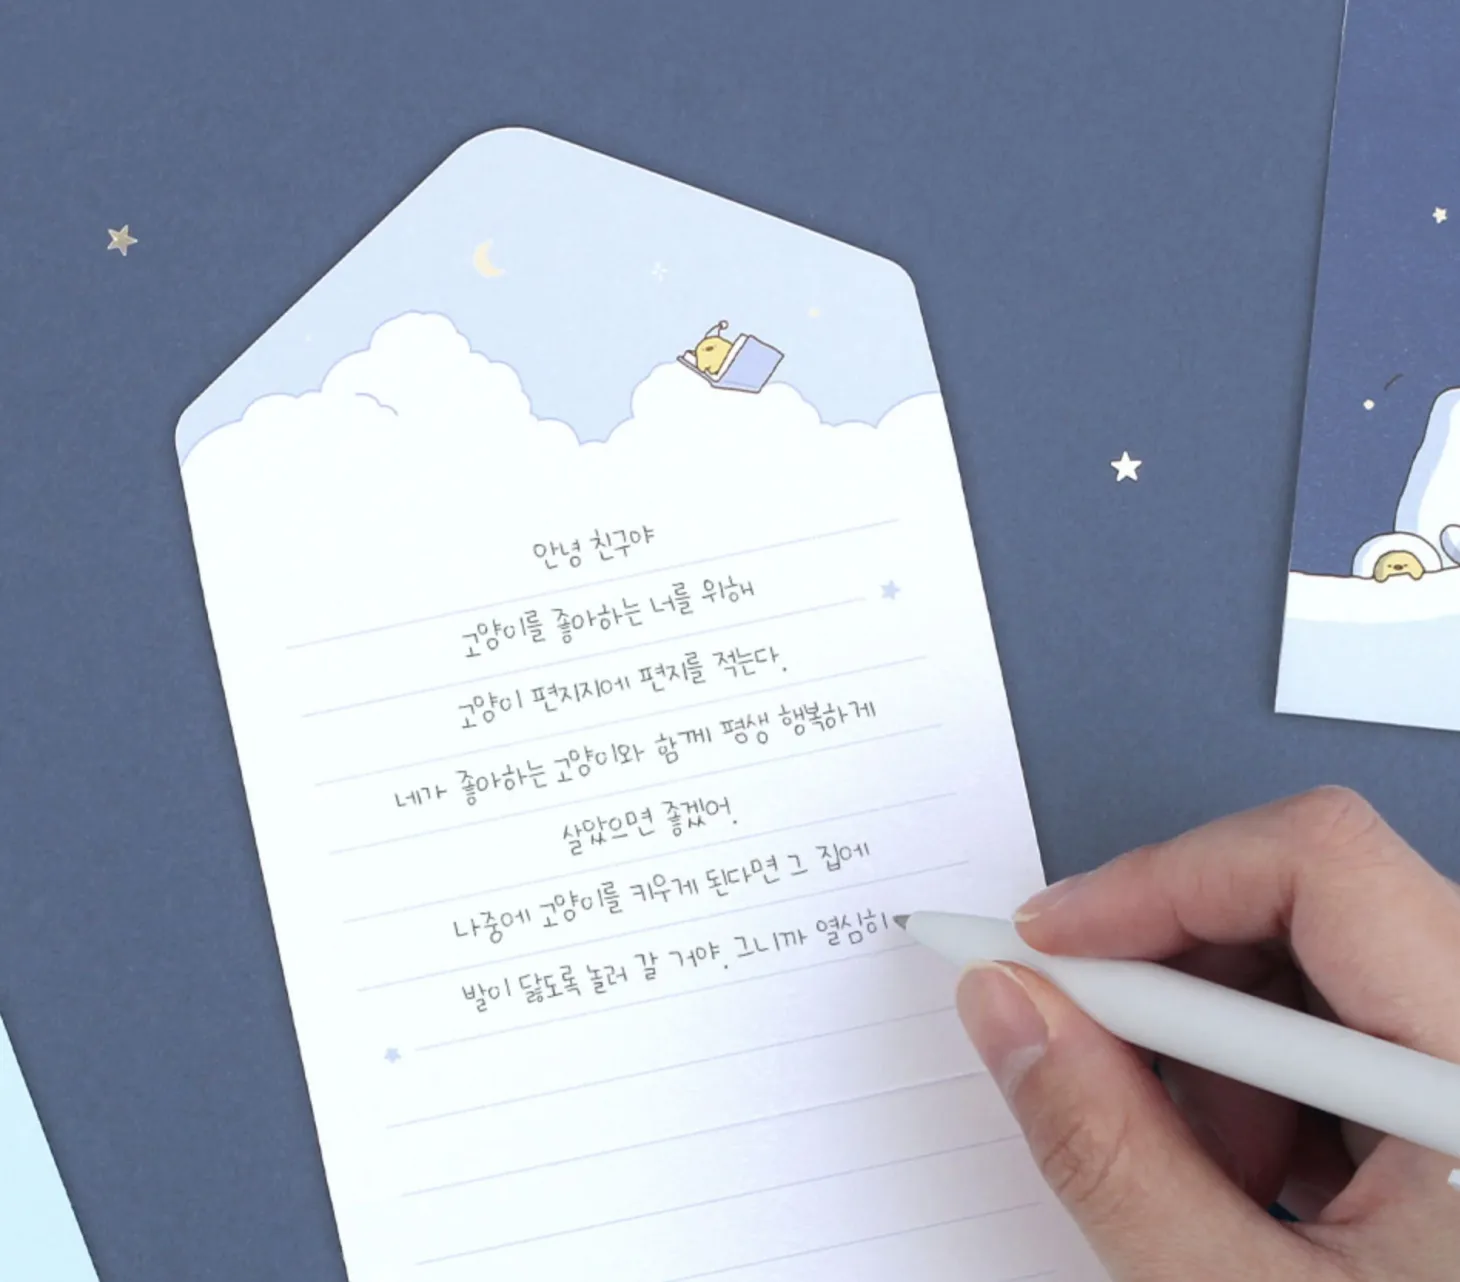 안녕 친구야
고양이를 좋아하는 너를 위해
고양이 편지지에 편지를 적는다.
네가 좋아하는 고양이와 함께 평생 행복하게
살았으면 좋겠어.
나중에 고양이를 키우게 된다면 그 집에
발이 닳도록 놀러 갈 거야. 그니까 열심히